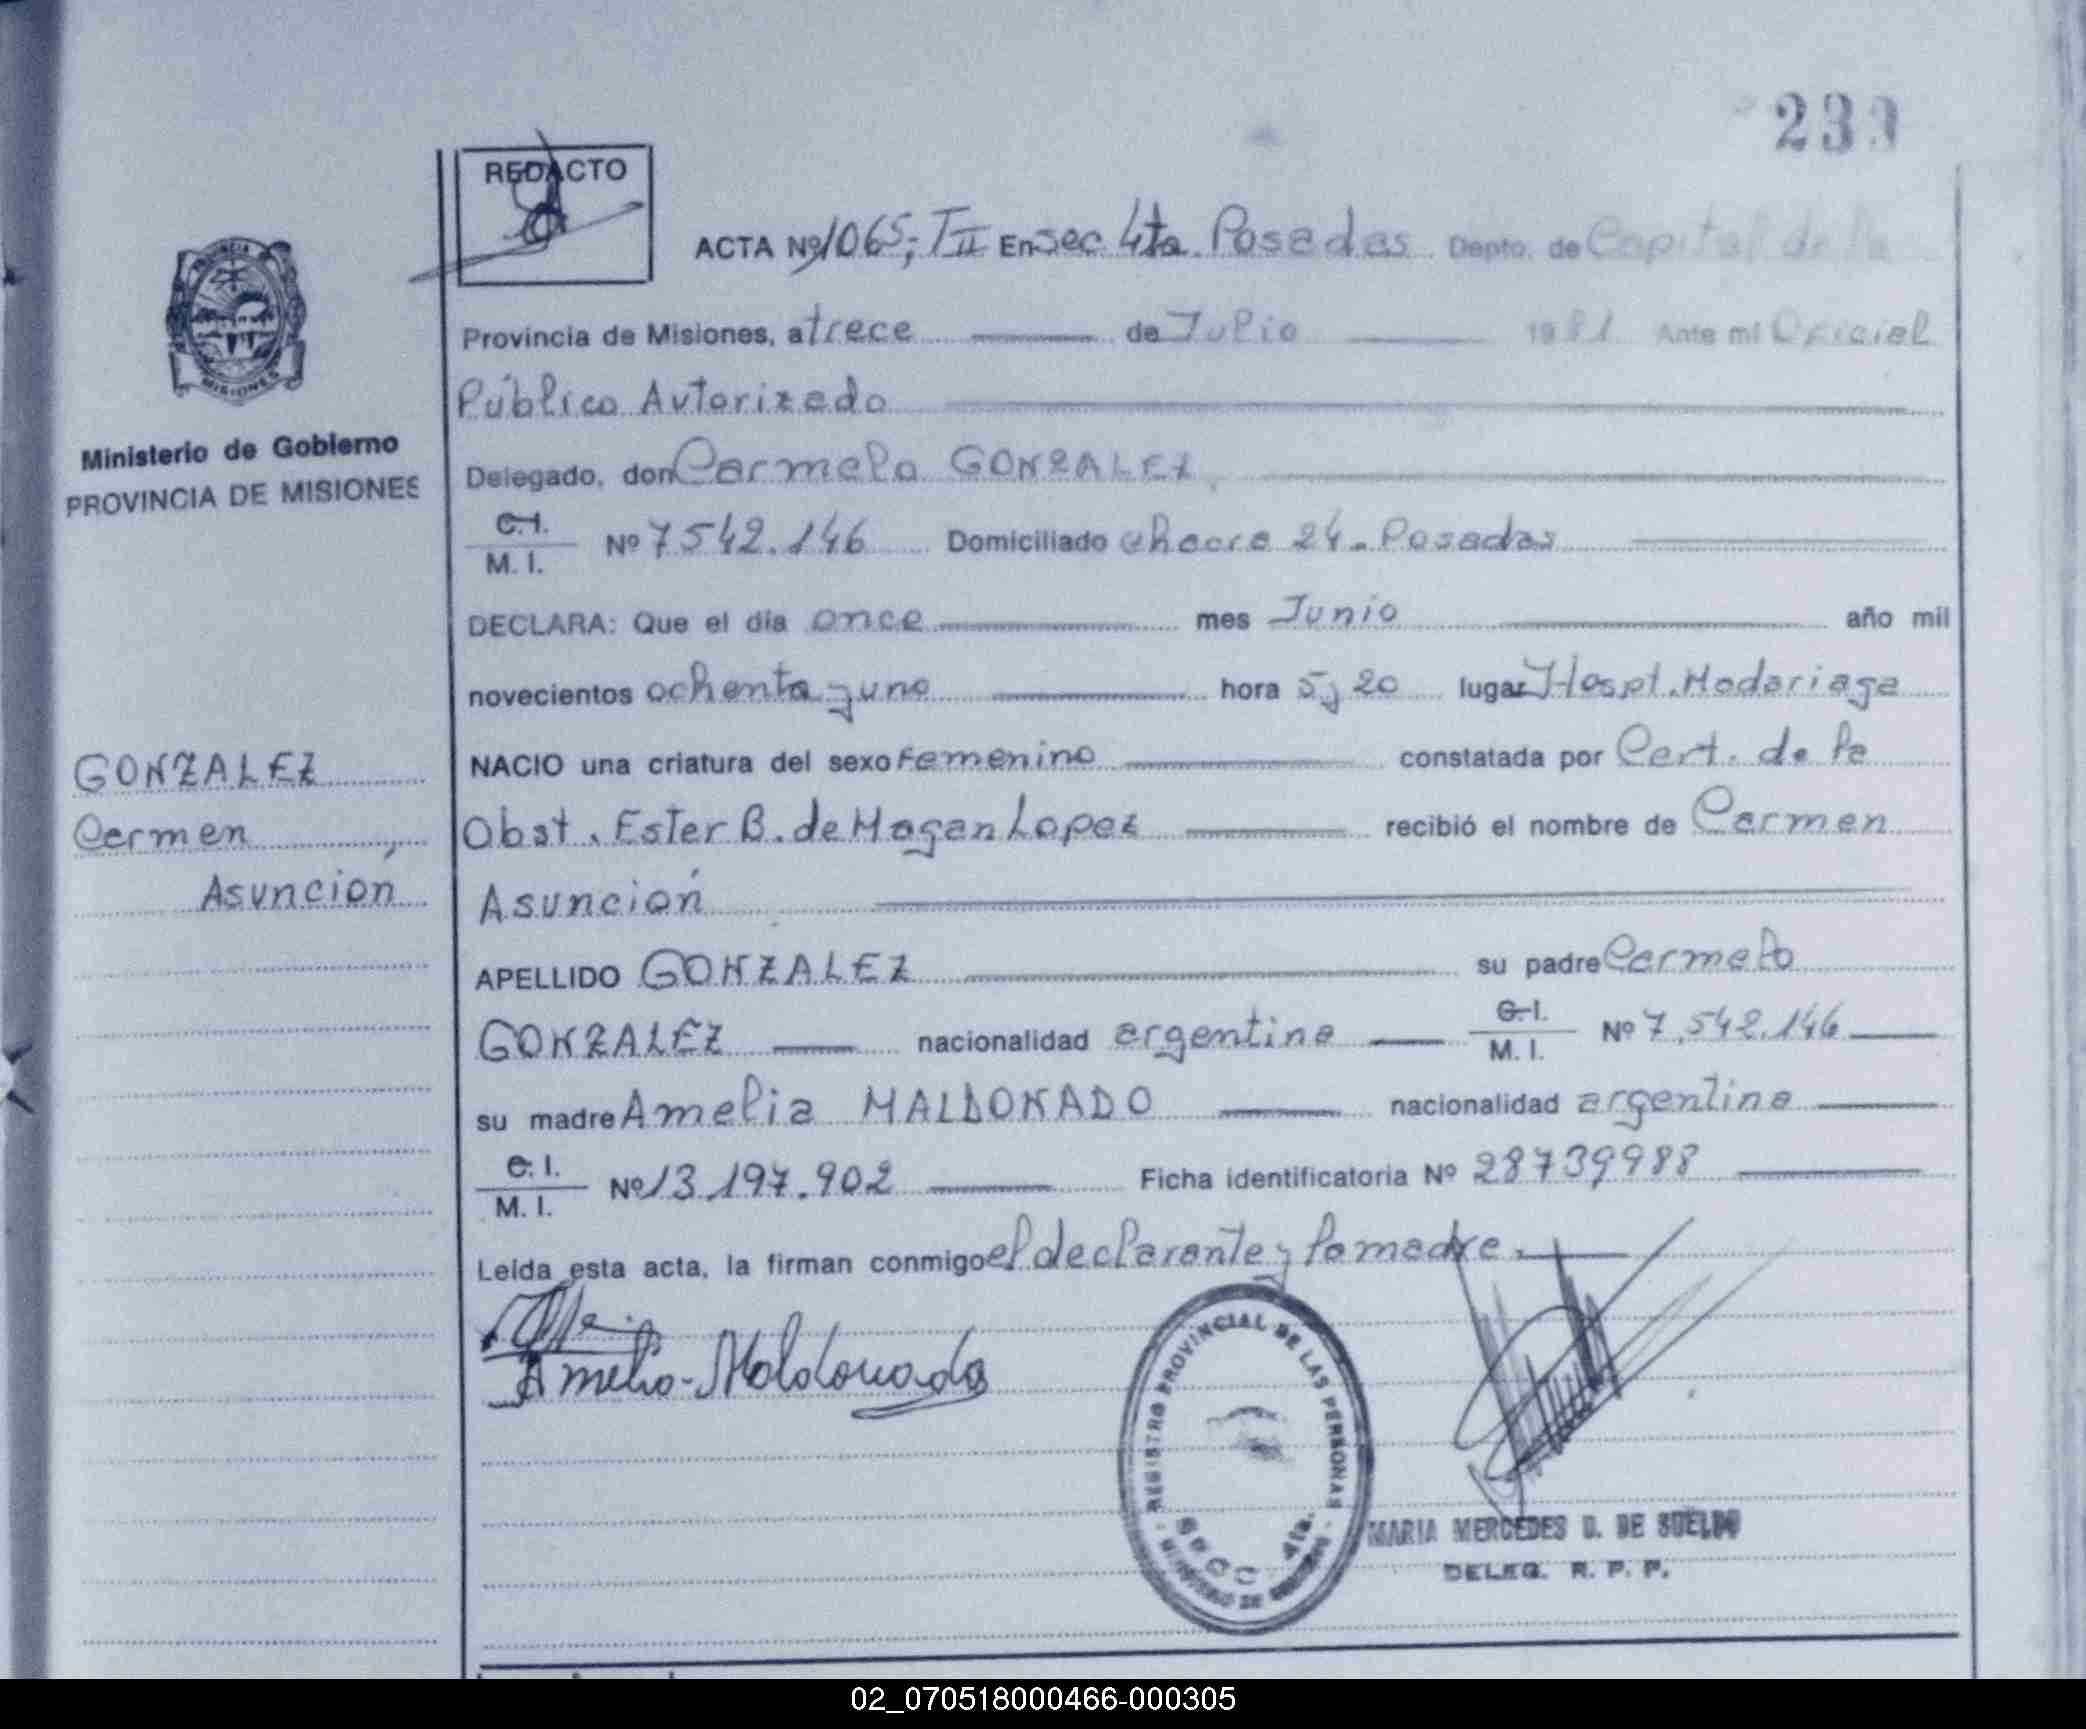 233
REDACTO
ACTA Nº 1065; T II En sec 4ta. Posadas Depto. de Capital de la
Provincia de Misiones, a trece de Julio 1981 Ante mí Oficial
Público Autorizado
Delegado, don Carmelo GONZALEZ
C.I. / M. I. Nº 7542.146 Domiciliado chacra 24. Posadas
DECLARA: Que el día once mes Junio año mil
novecientos ochenta y uno hora 5 y 20 lugar Hospt. Madariaga
NACIO una criatura del sexo femenino constatada por Cert. de la
Obst. Ester B. de Magan Lopez recibió el nombre de Carmen
Asunción
APELLIDO GONZALEZ su padre Carmelo
GONZALEZ nacionalidad argentina C.I. / M. I. Nº 7.542.146
su madre Amelia MALDONADO nacionalidad argentina
C.I. / M. I. Nº 13.197.902 Ficha identificatoria Nº 28739988
Leída esta acta, la firman conmigo el declarante y la madre.
Amelia Maldonado
REGISTRO PROVINCIAL DE LAS PERSONAS
Secc 4ta.
MINISTERIO DE GOBIERNO
MARIA MERCEDES D. DE SUELDO
DELEG. R. P. P.
PROVINCIA
MISIONES
Ministerio de Gobierno
PROVINCIA DE MISIONES
GONZALEZ
Carmen,
Asuncion
02_070518000466-000305